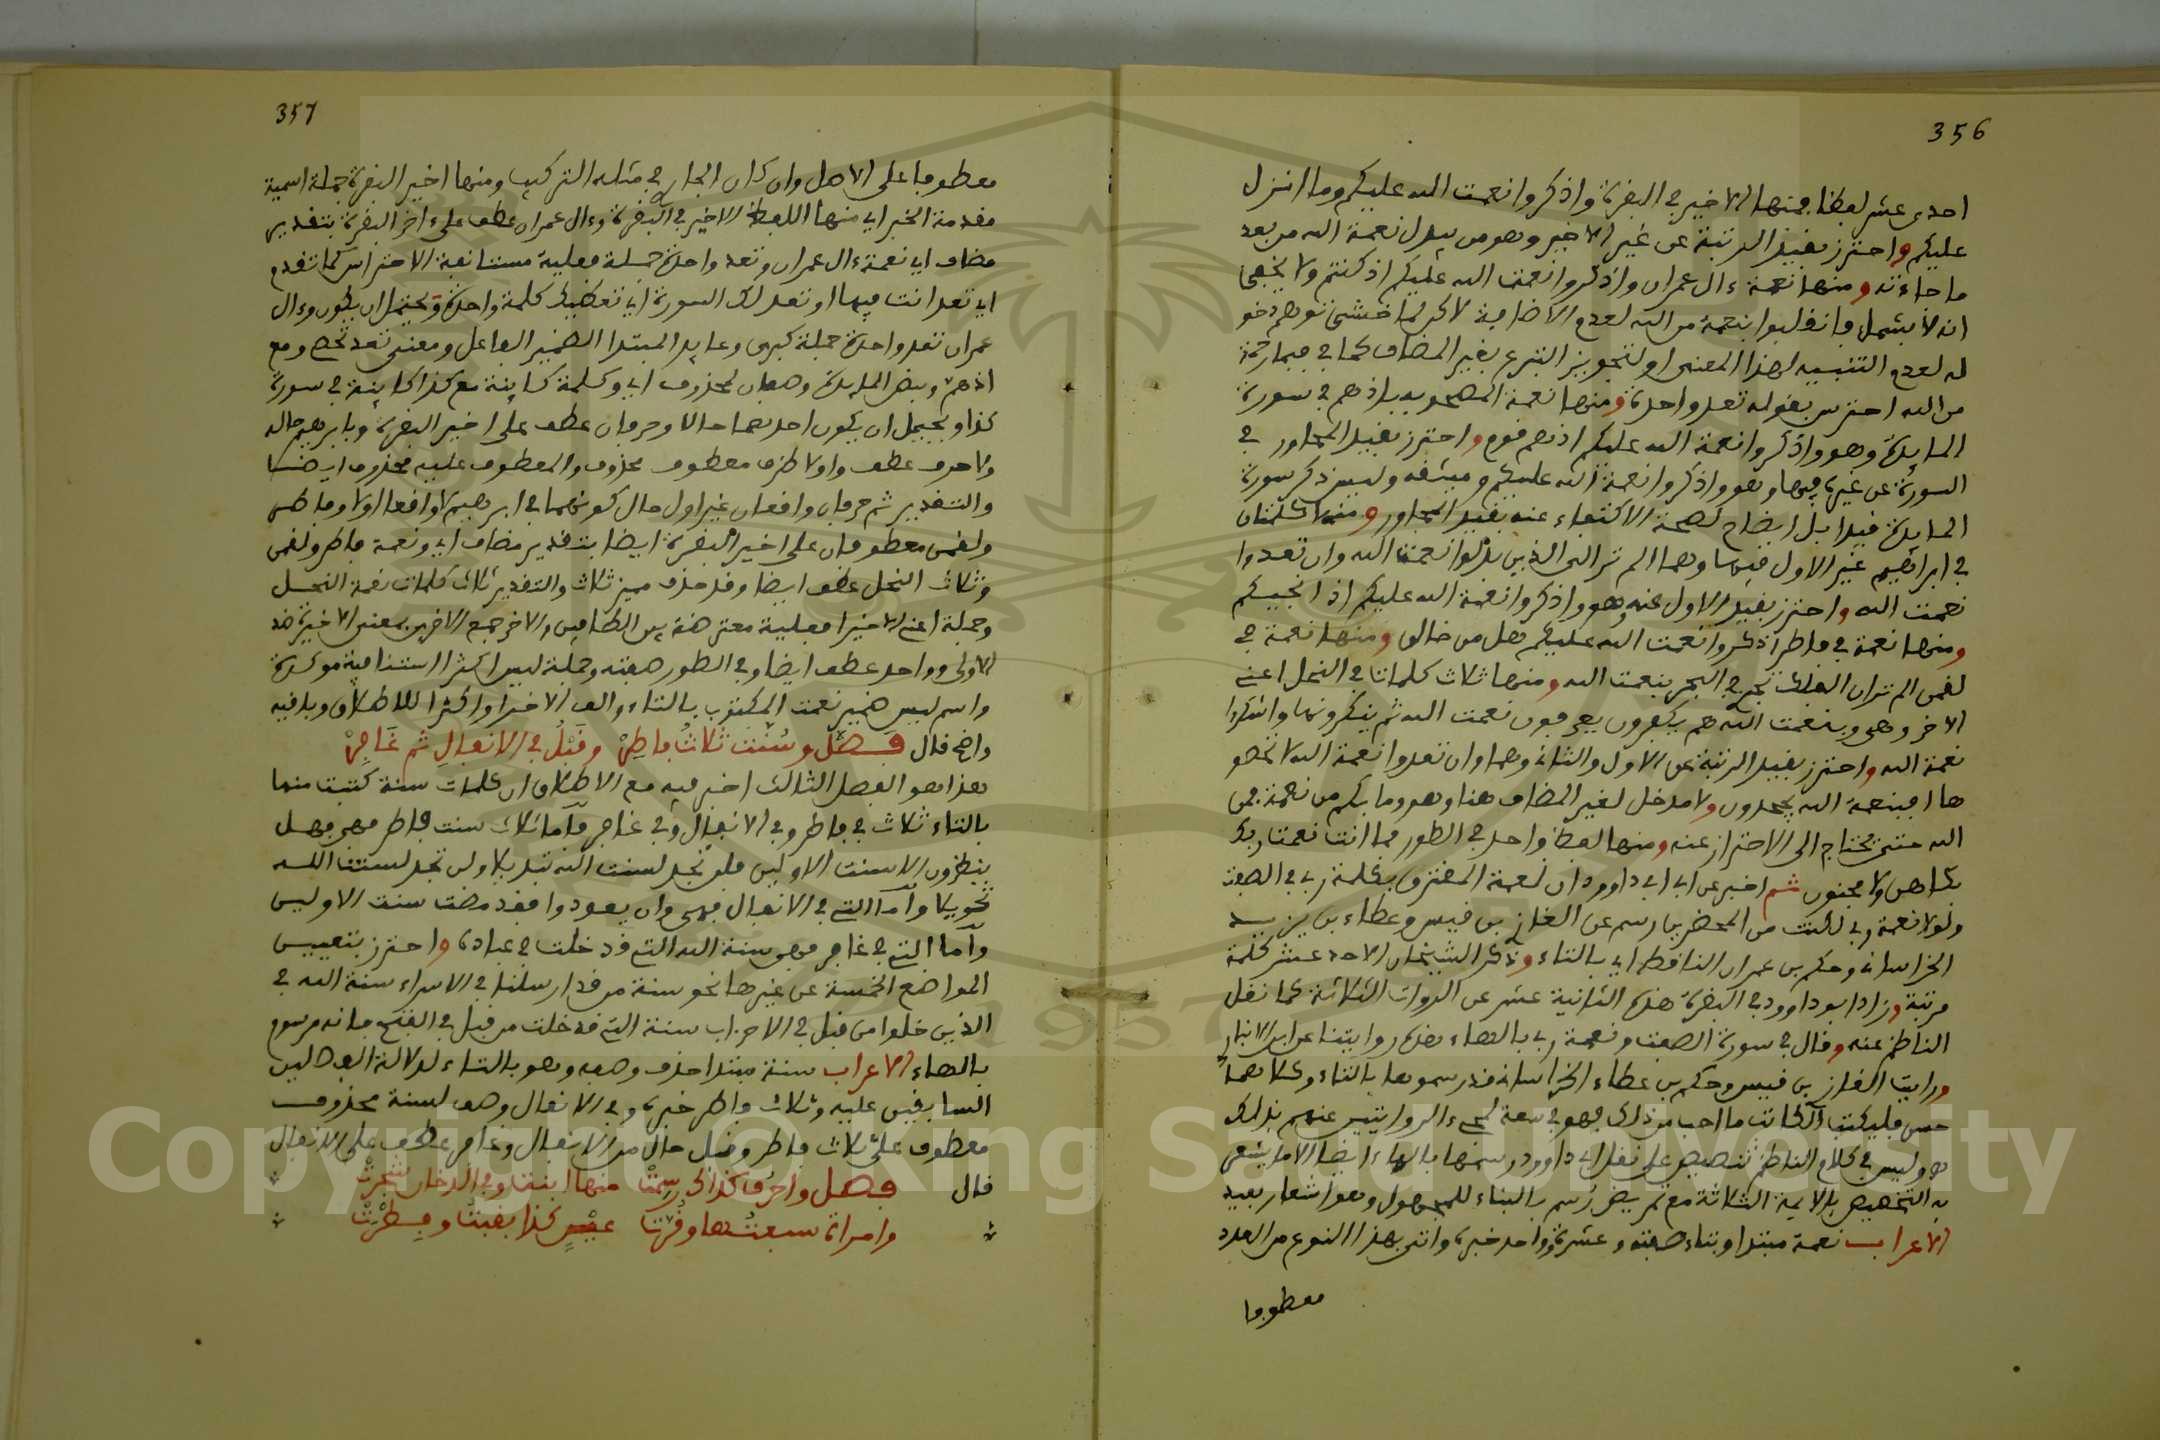 356
احدى عشر لفظا فمنها الاخير في البقرة واذكروا نعمت الله عليكم وما انزل
عليكم واحترز بقيد الرتبة عن غير الاخير وهو من يبدل نعمة الله من بعد
ما جاءته ومنها نعمة ءال عمران واذكروا نعمت الله عليكم اذ كنتم ولا يخفى
انه لا يشمل فانقلبوا بنعمة من الله لعدم الاضافة لاكن لما خشي توهم دخو
له لعدم التنبيه لهذا المعنى او لتجويز التبرع بغير المضاف كما في فبما رحمة
من الله احترس بقوله تعد واحدة ومنها نعمة المصحوبة باذ هم في سورة
المايدة وهو واذكروا نعمة الله عليكم اذ هم قوم واحترز بقيد المجاور في
السورة عن غيره فيها وهو واذكروا نعمة الله عليكم وميثقه وليس ذكر سورة
المايدة قيدا بل ايضاح لصحة الاكتفاء عنه بقيد المجاور ومنها كلمتان
في ابراهيم غير الاول فيها وهما الم تر الى الذين بدلوا نعمت الله وان تعدوا
نعمت الله واحترز بقيد الاول عنه وهو واذكروا نعمة الله عليكم اذ انجيكم
ومنها نعمة في فاطر اذكروا نعمت الله عليكم هل من خالق ومنها نعمة في
لقمن الم تر ان الفلك تجري في البحر بنعمت الله ومنها ثلاث كلمات في النحل اعني
الاخر وهي وبنعمت الله هم يكفرون يعرفون نعمت الله ثم ينكرونها واشكروا
نعمة الله واحترز بقيد الرتبة عن الاول والثاني وهما وان تعدوا نعمة الله لا تحصو
ها افبنعمة الله يجحدون ولا مدخل لغير المضاف هنا وهو وما بكم من نعمة فمن
الله حتى يحتاج الى الاحتراز عنه ومنها لفظ واحد في الطور فما انت نعمت ربك
بكاهن ولا مجنون ثم اخبر عن ابي داوود ان نعمة المقترن بكلمة ربي في الصفت
ولولا نعمة ربي لكنت من المحضرين رسم عن الغاز بن قيس وعطاء بن يزيد
الخراساني وحكم بن عمران الناقط اي بالتاء وذكر الشيخان الاحد عشر كلمة
مرتبة وزاد ابو داوود في البقرة هذه الثانية عشر عن الروات الثلاثة كما نقل
الناظم عنه وقال في سورة الصفت ونعمة ربي بالهاء هذه روايتنا عن ابن الانباري
ورايت الغاز بن قيس وحكم بن عطاء الخراساني قد رسموها بالتاء وكلاهما
حسن فليكتب الكاتب ما احب من ذلك فهو في سعة لمجيء الروايتين عنهم بذلك
هو وليس في كلام الناظم تنصيص على نقل ابي داوود رسمها بالهاء ايضا الا ما يشعر
به التخصيص بالايمة الثلاثة مع تمريض رسم بالبناء للمجهول وهو اشعار بعيد
الاعراب نعمة مبتدا وبتاء صفته وعشرة وواحد خبره واتى بهذا النوع من العدد
معطوفا
357
معطوفا على الاصل وان كان الجار في مثله التركيب ومنها اخير البقرة جملة اسمية
مقدمة الخبر اي منها اللفظ الاخير في البقرة وءال عمران عطف على ءاخر البقرة بتقدير
مضاف اي نعمة ءال عمران وتعد واحدة جملة فعلية مستانفة للاحتراس كما تقدم
اي تعد انت فيها او تعد لك السورة اي تعطيك كلمة واحدة ويحتمل ان يكون وءال
عمران تعد واحدة جملة كبرى وعايد المبتدا الضمير الفاعل ومعنى تعد تحص ومع
اذ هم وبنص المايدة وصفان لمحذوف اي وكلمة كاينة مع كذا كاينة في سورة
كذا ويحتمل ان يكون احدهما حالا وحرفان عطف على اخير البقرة وبابرهيم حاله
ولا حرف عطف واولا ظرف معطوف محذوف والمعطوف عليه محذوف ايضا
والتقدير ثم حرفان واقعان غير اول حال كونهما في ابرهيم لا واقعا اولا وفاطر
ولقمن معطوفان على اخير البقرة ايضا بتقدير مضاف اي ونعمة فاطر ولقمن
وثلاث النحل عطف ايضا وقد حذف مميز ثلاث والتقدير ثلاث كلمات نعمة النحل
وجملة اعني الاخيرا فعلية معترضة بين المتعاطفين والاخر جمع الاخرى بمعنى الاخيرة ضد
الاولى وواحد عطف ايضا وفي الطور صفته وجملة ليس اكثرا استنافية موكدة
واسم ليس ضمير نعمت المكتوب بالتاء والف الاخرا واكثرا للاطلاق وباقيه
واضح قال فصل وسنت ثلاث فاطر وقبل في الانفال ثم غافر
هذا هو الفصل الثالث اخبر فيه مع الاطلاق ان كلمات سنة كتبت منها
بالتاء ثلاث في فاطر وفي الانفال وفي غافر فاما ثلاث سنت فاطر فهي فهل
ينظرون الا سنت الاولين فلن تجد لسنت الله تبديلا ولن تجد لسنت الله
تحويلا واما التي في الانفال فهي وان يعودوا فقد مضت سنت الاولين
واما التي في غافر فهي سنة الله التي قد خلت في عباده واحترز بتعيين
المواضع الخمسة عن غيرها نحو سنة من قد ارسلنا في الاسراء سنة الله في
الذين خلوا من قبل في الاحزاب سنة التي قد خلت من قبل في الفتح فانه مرسوم
بالهاء الاعراب سنة مبتدا حذف وصفه وهو بالتاء لدلالة الفصلين
السابقين عليه وثلاث فاطر خبره وفي الانفال وصف لسنة محذوف
معطوف على ثلاث فاطر وقبل حال من الانفال وغافر عطف على الانفال
قال فصل واحرف كذاك رسمت منها ابنت وفي الدخان شجرت
وامرات سبعتها وقرت عين كذا بقيت وفطرت